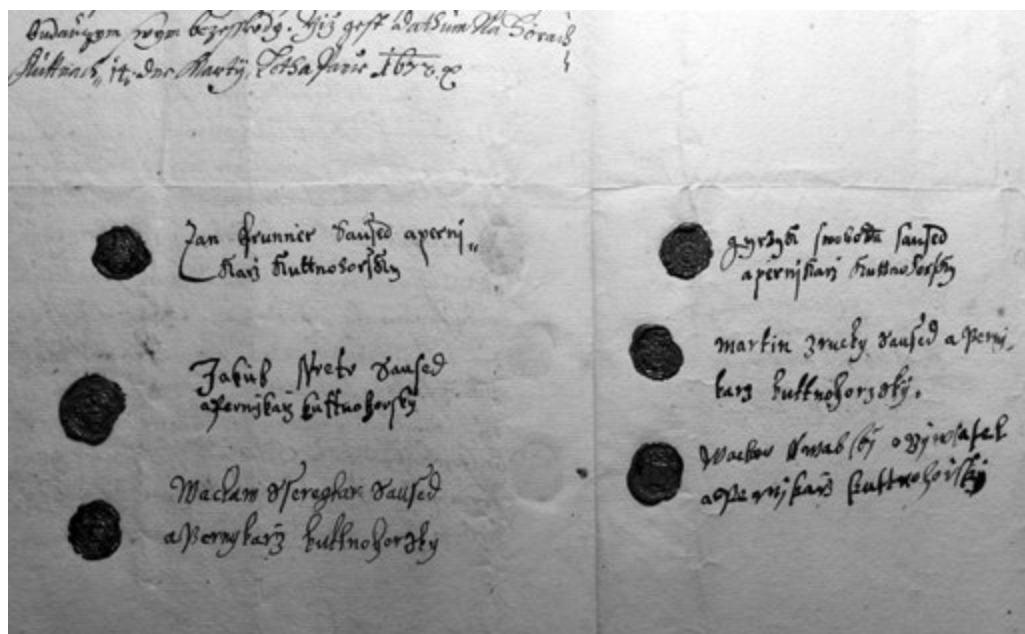 Budauczym swym bezesskody. Jiz gest Dathum Na Horach
Kuttnach, 14. dne Martij, Letha Panie 1678.
Jan Brunner Saused a perni,,
karz Kuttnohorsky
Jakub Saused
a Pernykarz kuttnohorsky
Waclaw Saused
a Pernykarz kuttnohorzsky
Gyrzyk swoboda saused
a pernikarz Kuttnohorsky
Martin zrucky Saused a Perni,
karz kuttnohorzsky.
Waclaw obiwatel
a Pernikarz kuttnohorsky